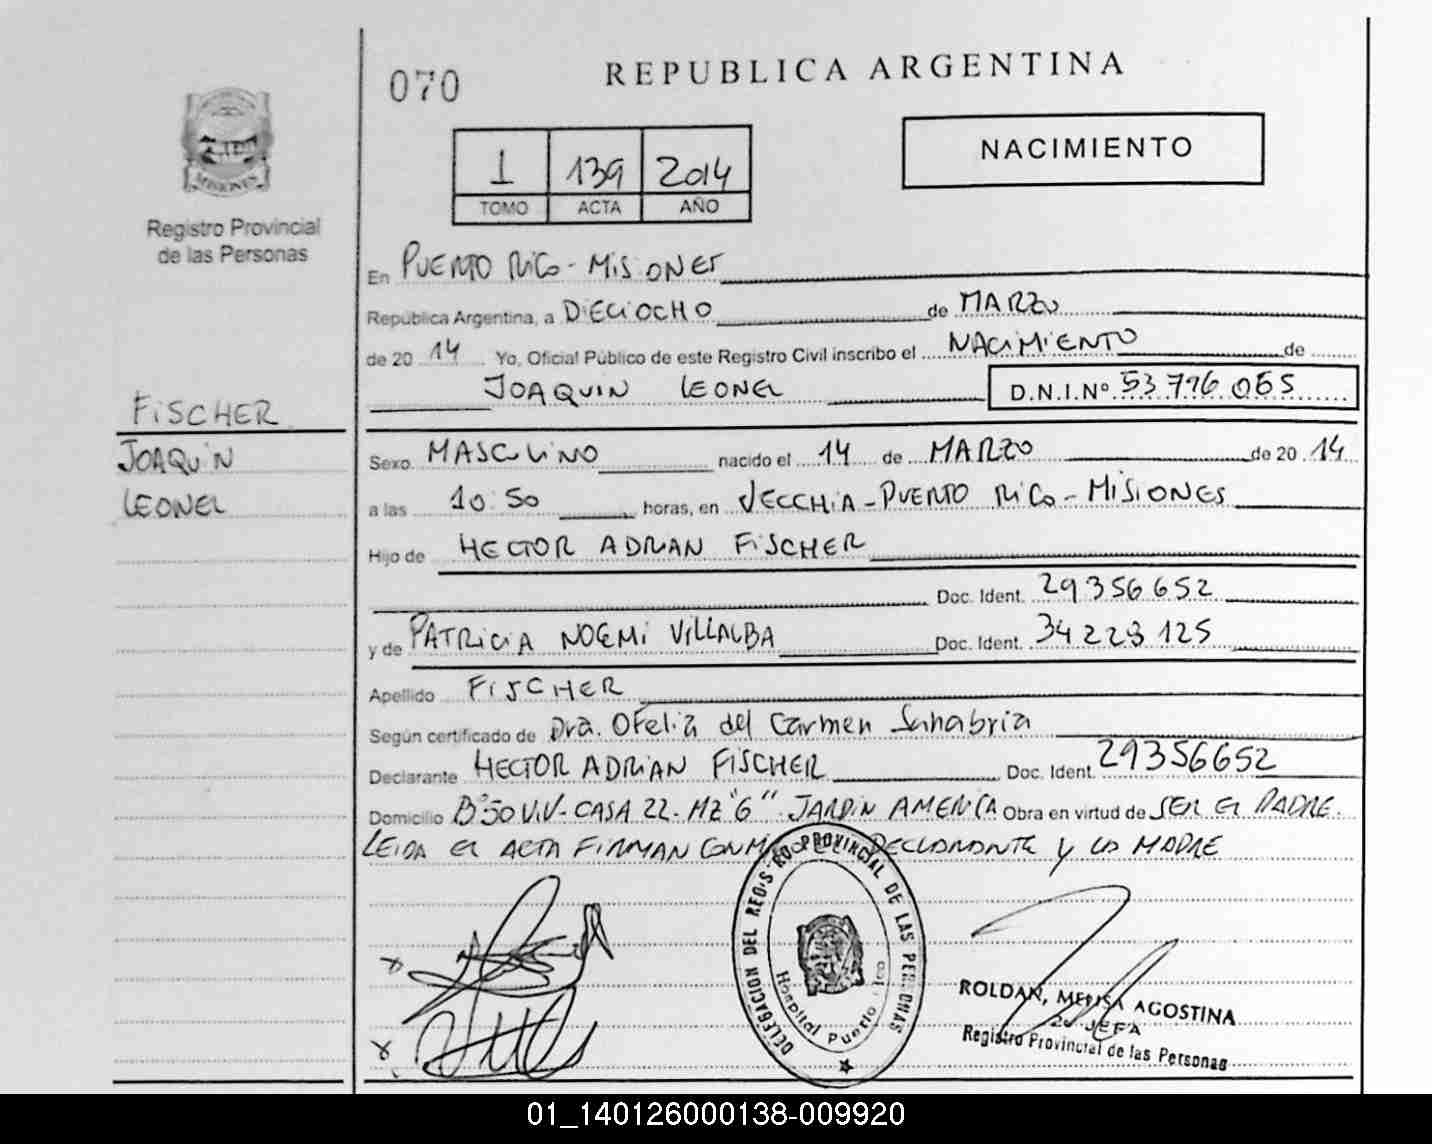 070
REPUBLICA ARGENTINA
NACIMIENTO
1 139 2014
TOMO ACTA AÑO
MISIONES
Registro Provincial
de las Personas
En PUERTO RICO - MISIONES
República Argentina, a DIECIOCHO de MARZO
de 20 14 Yo, Oficial Público de este Registro Civil inscribo el NACIMIENTO de
JOAQUIN LEONEL D.N.I.Nº 53 796 065
FISCHER
JOAQUIN
LEONEL
Sexo MASCULINO nacido el 14 de MARZO de 20 14
a las 10:50 horas, en VECCHIA - PUERTO RICO - MISIONES
Hijo de HECTOR ADRIAN FISCHER
Doc. Ident. 29356652
y de PATRICIA NOEMI VILLALBA Doc. Ident. 34223125
Apellido FISCHER
Según certificado de Dra. Ofelia del Carmen Sanabria
Declarante HECTOR ADRIAN FISCHER Doc. Ident. 29356652
Domicilio Bº50 VIV - CASA 22 - MZ "G" JARDIN AMERICA Obra en virtud de SER EL PADRE.
LEIDA EL ACTA FIRMAN DECLARANTE Y LA MADRE
DELEGACION DEL REGISTRO PROVINCIAL DE LAS PERSONAS
Hospital Puerto Rico
ROLDAN, MELISA AGOSTINA
JEFA
Registro Provincial de las Personas
01_140126000138-009920